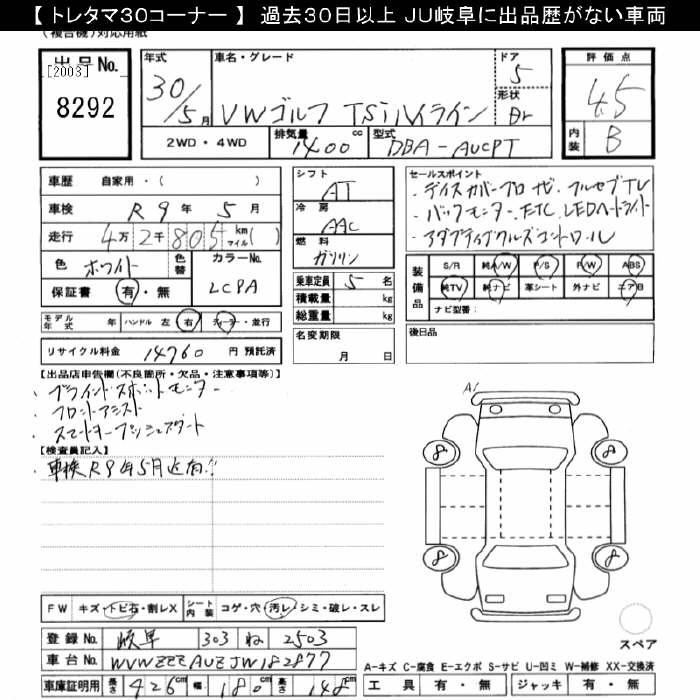 【トレタマ30コーナー】 過去30日以上 JU岐阜に出品歴がない車両
(複合機)対応用紙
出品No. [2003] 8292
年式 30/5月
車名・グレード VWゴルフ TSiハイライン
ドア 5
形状 Br
評価点 4.5
内装 B
2WD・4WD 排気量 1400 cc 型式 DBA-AUCPT
車歴 自家用・( )
車検 R9年 5月
走行 4万2千805 km マイル( )
色 ホワイト 色替 カラーNo. LCPA
保証書 有・無
モデル年式 年 ハンドル 左 右 ディーラー・並行
リサイクル料金 14760 円 預託済
シフト AT
冷房 AAC
燃料 ガソリン
乗車定員 5 名
積載量 kg
総重量 kg
名変期限 月 日
セールスポイント
・ディスカバープロ ナビ、フルセグTV
・バックモニター、ETC、LEDヘッドライト
・アダプティブクルーズコントロール
装備品 S/R 純A/W P/S P/W ABS
純TV 純ナビ 革シート 外ナビ エアB
ナビ型番:
後日品
【出品店申告欄(不良箇所・欠品・注意事項等)】
・ブラインドスポットモニター
・フロントアシスト
・スマートキープッシュスタート
【検査員記入】
・車検R9年5月迄有!!
A1
8 8
8 8
スペア
FW キズ・トビ石・割レX シート内装 コゲ・穴・汚レ・シミ・破レ・スレ
登録No. 岐阜 303 ね 2503
車台No. WVWZZZAUZJW182877
車庫証明用 長さ 426cm 幅 180cm 高さ 148cm
A-キズ C-腐食 E-エクボ S-サビ U-凹ミ W-補修 XX-交換済
工具 有・無 ジャッキ 有・無